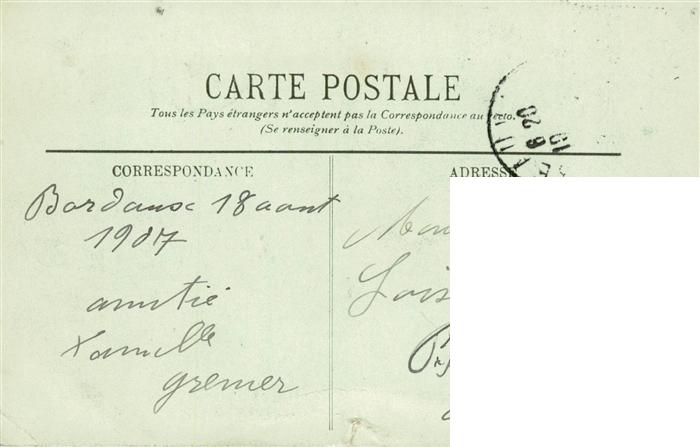 CARTE POSTALE
Tous les Pays étrangers n'acceptent pas la Correspondance au recto.
(Se renseigner à la Poste).
CORRESPONDANCE
ADRESSE
Bordaux 18 aout
1907
amitié
famille
grenier